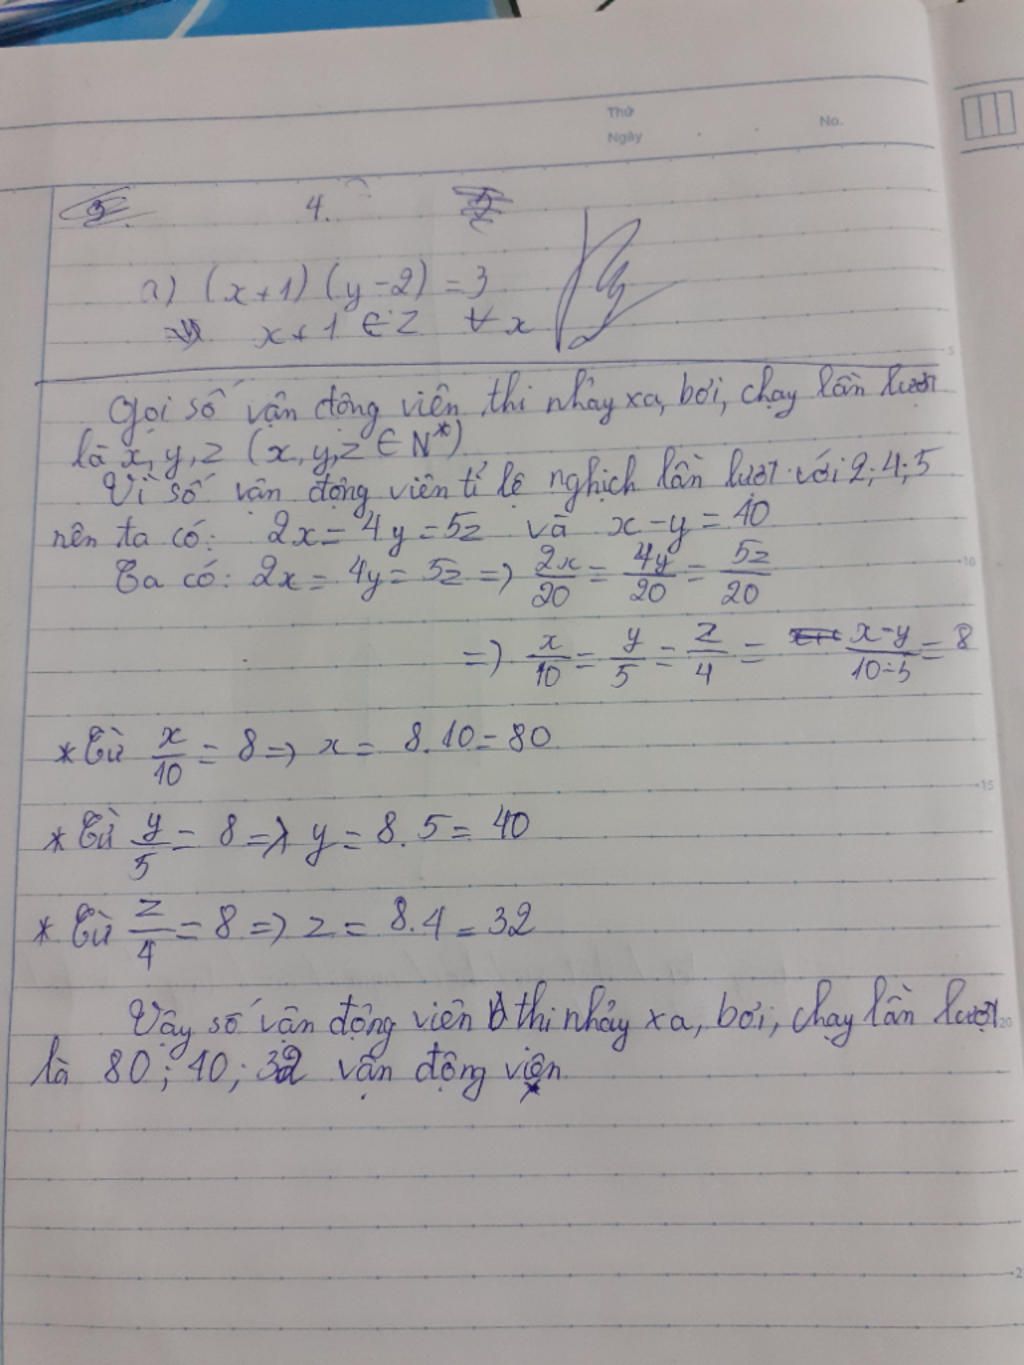 Thứ
Ngày
No.
4.
a) (x+1)(y-2) = 3
x+1 ∈ Z ∀ x
Gọi số vận động viên thi nhảy xa, bơi, chạy lần lượt
là x, y, z (x, y, z ∈ N*)
Vì số vận động viên tỉ lệ nghịch lần lượt với 2; 4; 5
nên ta có: 2x = 4y = 5z và x - y = 40
Ta có: 2x = 4y = 5z => 2x/20 = 4y/20 = 5z/20
=> x/10 = y/5 = z/4 = x-y/10-5 = 8
* Từ x/10 = 8 => x = 8.10 = 80
* Từ y/5 = 8 => y = 8.5 = 40
* Từ z/4 = 8 => z = 8.4 = 32
Vậy số vận động viên thi nhảy xa, bơi, chạy lần lượt
là 80; 40; 32 vận động viên